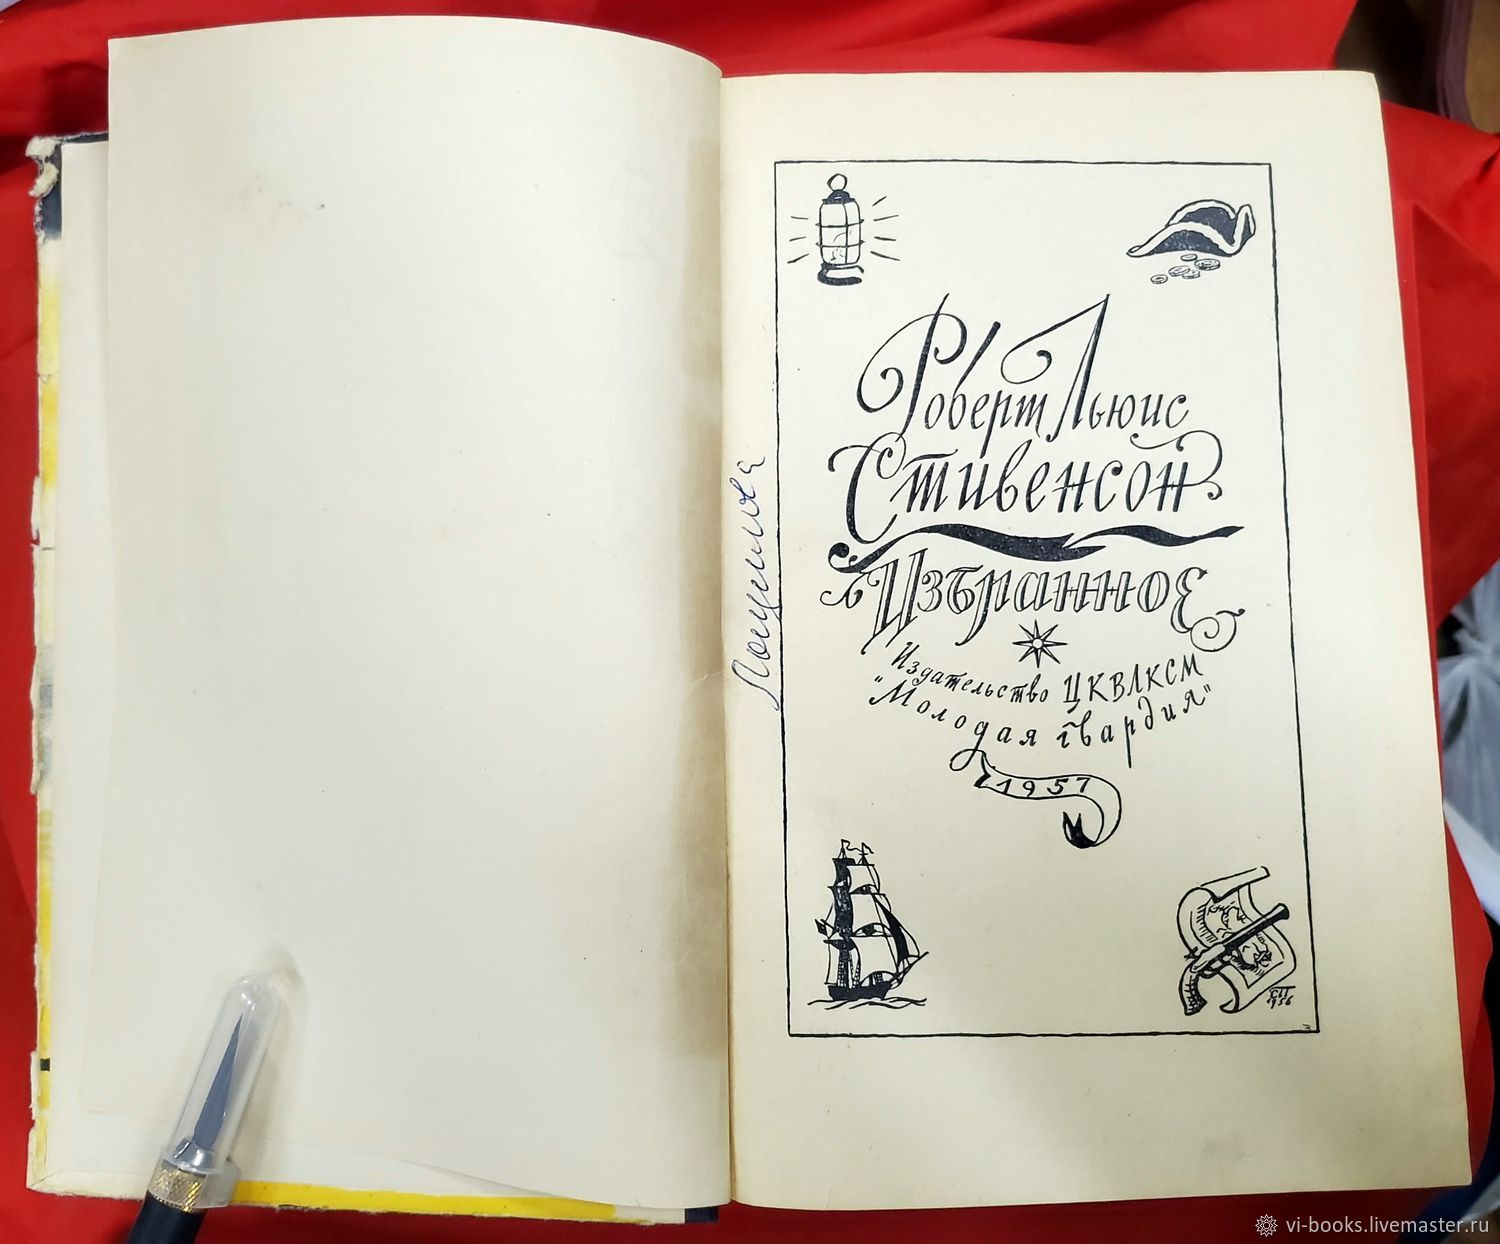 Роберт Льюис
Стивенсон
Избранное
Издательство ЦК ВЛКСМ
"Молодая гвардия"
1957
СП
1956
vi-books.livemaster.ru